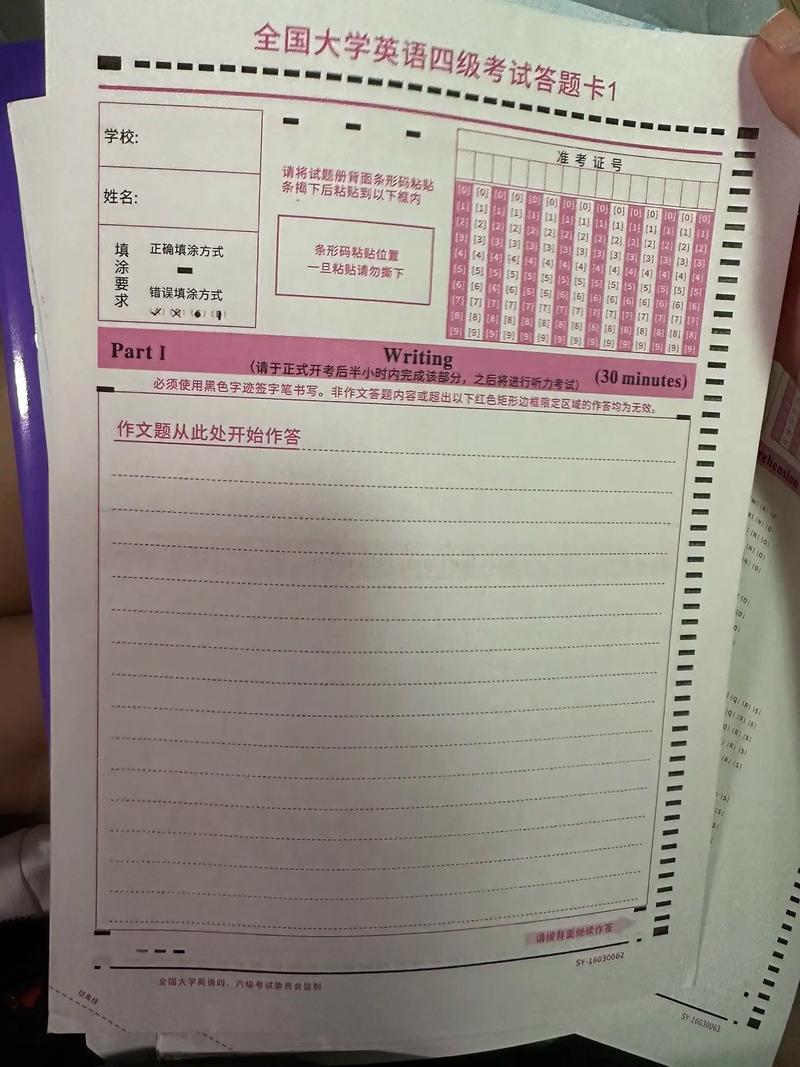 全国大学英语四级考试答题卡1
学校:
姓名:
填涂要求
正确填涂方式
错误填涂方式
请将试题册背面条形码粘贴
条揭下后粘贴到以下框内
条形码粘贴位置
一旦粘贴请勿撕下
准考证号
[0] [0] [0] [0] [0] [0] [0] [0] [0] [0] [0] [0] [0] [0] [0]
[1] [1] [1] [1] [1] [1] [1] [1] [1] [1] [1] [1] [1] [1] [1]
[2] [2] [2] [2] [2] [2] [2] [2] [2] [2] [2] [2] [2] [2] [2]
[3] [3] [3] [3] [3] [3] [3] [3] [3] [3] [3] [3] [3] [3] [3]
[4] [4] [4] [4] [4] [4] [4] [4] [4] [4] [4] [4] [4] [4] [4]
[5] [5] [5] [5] [5] [5] [5] [5] [5] [5] [5] [5] [5] [5] [5]
[6] [6] [6] [6] [6] [6] [6] [6] [6] [6] [6] [6] [6] [6] [6]
[7] [7] [7] [7] [7] [7] [7] [7] [7] [7] [7] [7] [7] [7] [7]
[8] [8] [8] [8] [8] [8] [8] [8] [8] [8] [8] [8] [8] [8] [8]
[9] [9] [9] [9] [9] [9] [9] [9] [9] [9] [9] [9] [9] [9] [9]
Part I Writing (30 minutes)
(请于正式开考后半小时内完成该部分，之后将进行听力考试)
必须使用黑色字迹签字笔书写。非作文答题内容或超出以下红色矩形边框限定区域的作答均为无效。
作文题从此处开始作答
请接背面继续作答
SY-16030062
全国大学英语四、六级考试委员会监制
切角线
SY-16030063